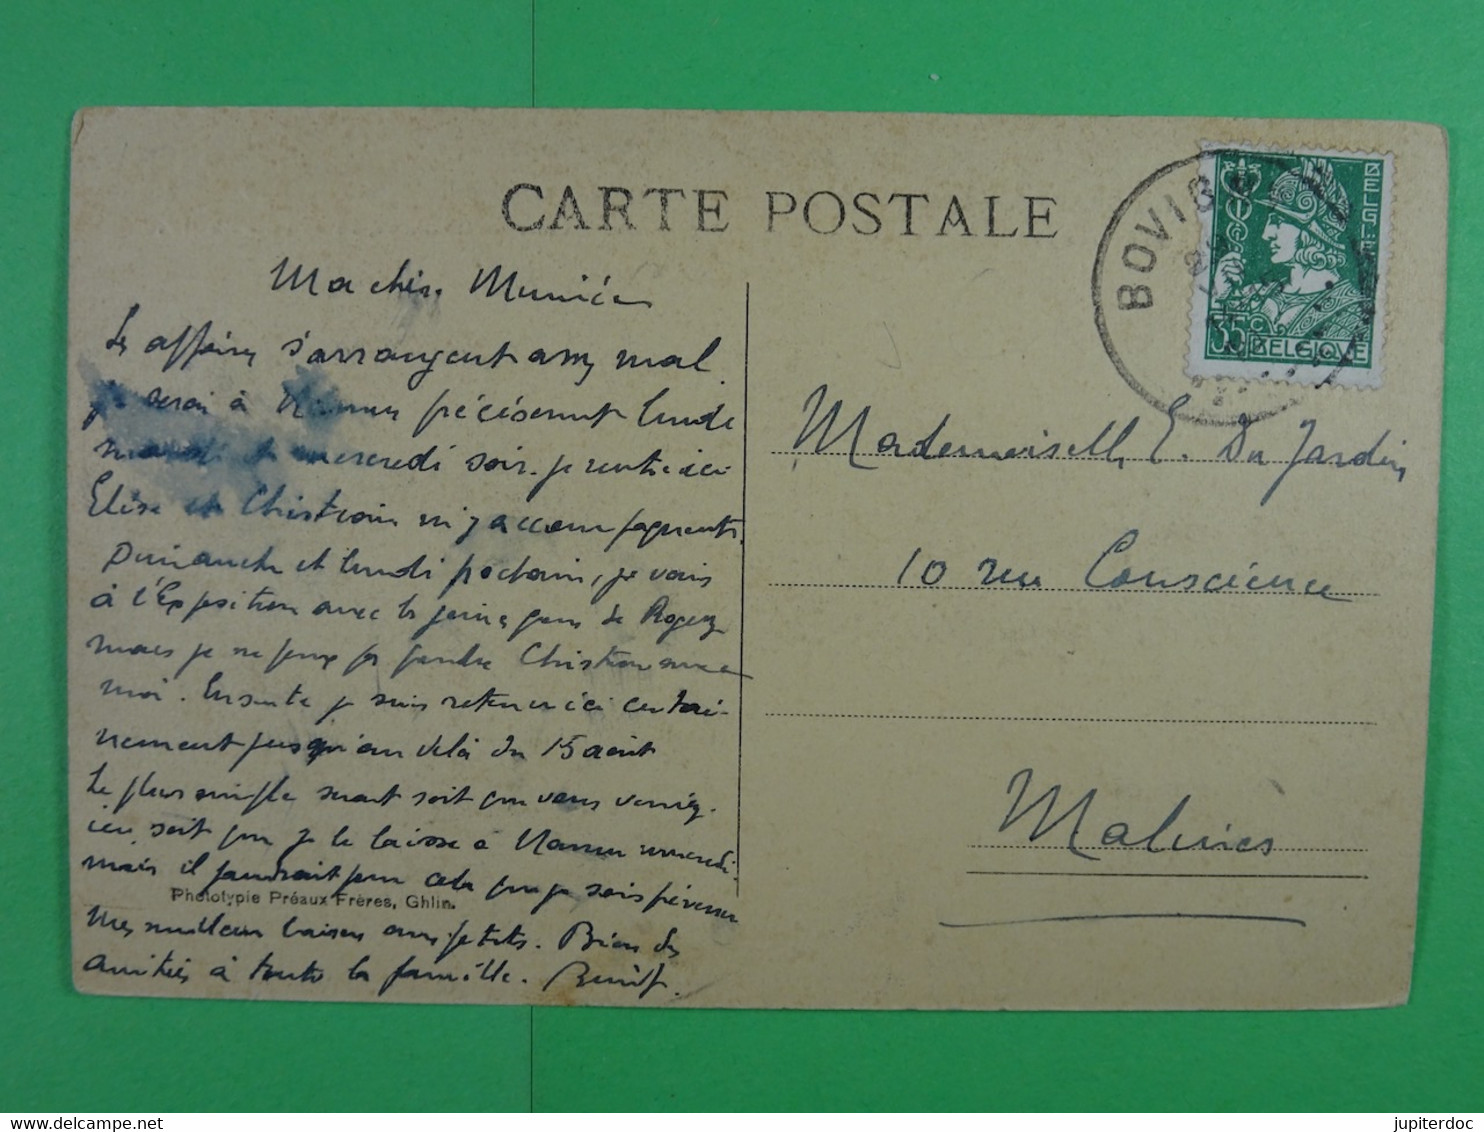 CARTE POSTALE
BOVIG
BELGIE
35c
BELGIQUE
Ma chère
Les affaires s'arrangent assez mal.
je serai à Namur précisément lundi
mardi et mercredi soir. je rentre ici
Elise et Christian m'y accompagnent.
Dimanche et lundi prochain, je vais
à l'Exposition avec les jeunes gens de
mais je ne peux pas prendre Christian avec
moi. Ensuite je suis retenu ici certai-
nement jusqu'au delà du 15 août
Le plus simple serait soit que vous veniez
ici, soit que je le laisse à Namur mercredi.
mais il faudrait pour cela que je sois prévenu
Phototypie Préaux Frères, Ghlin.
Mes meilleurs baisers aux petits. Bien des
amitiés à toute la famille.
Mademoiselle E. Du Jardin
10 rue Conscience
Malines
jupiterdoc